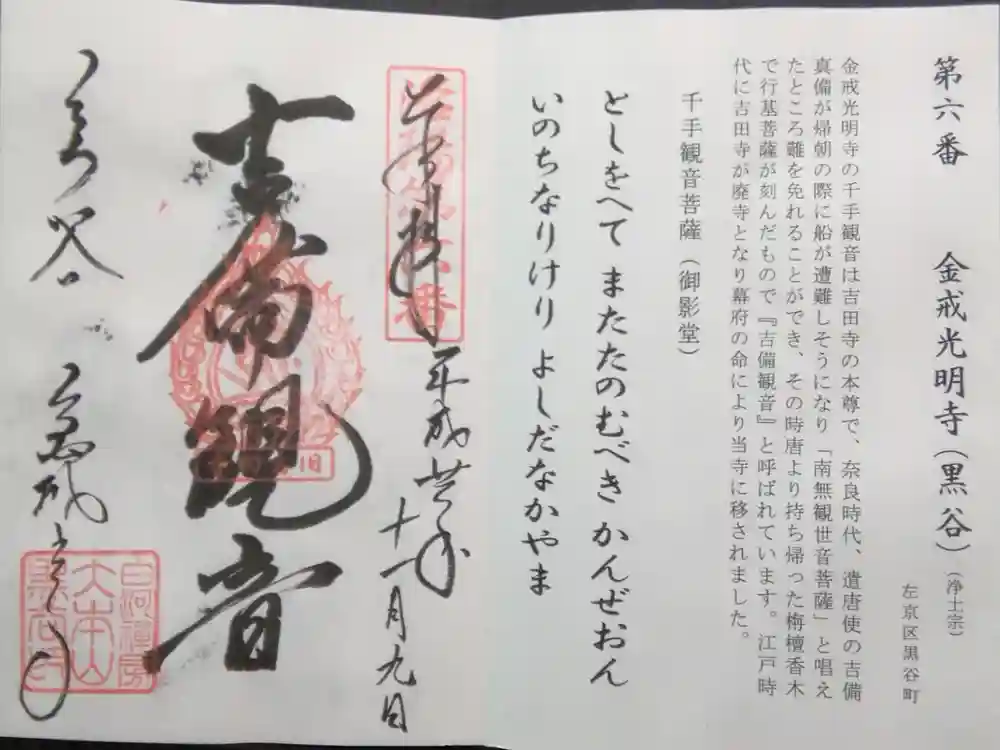 第六番　金戒光明寺（黒谷）（浄土宗）
左京区黒谷町
金戒光明寺の千手観音は吉田寺の本尊で、奈良時代、遣唐使の吉備
真備が帰朝の際に船が遭難しそうになり「南無観世音菩薩」と唱え
たところ難を免れることができ、その時唐より持ち帰った栴檀香木
で行基菩薩が刻んだもので『吉備観音』と呼ばれています。江戸時
代に吉田寺が廃寺となり幕府の命により当寺に移されました。
千手観音菩薩（御影堂）
としをへて またたのむべき かんぜおん
いのちなりけり よしだなかやま
奉拝 平成廿年
十一月九日
吉備観音
旧
大本山